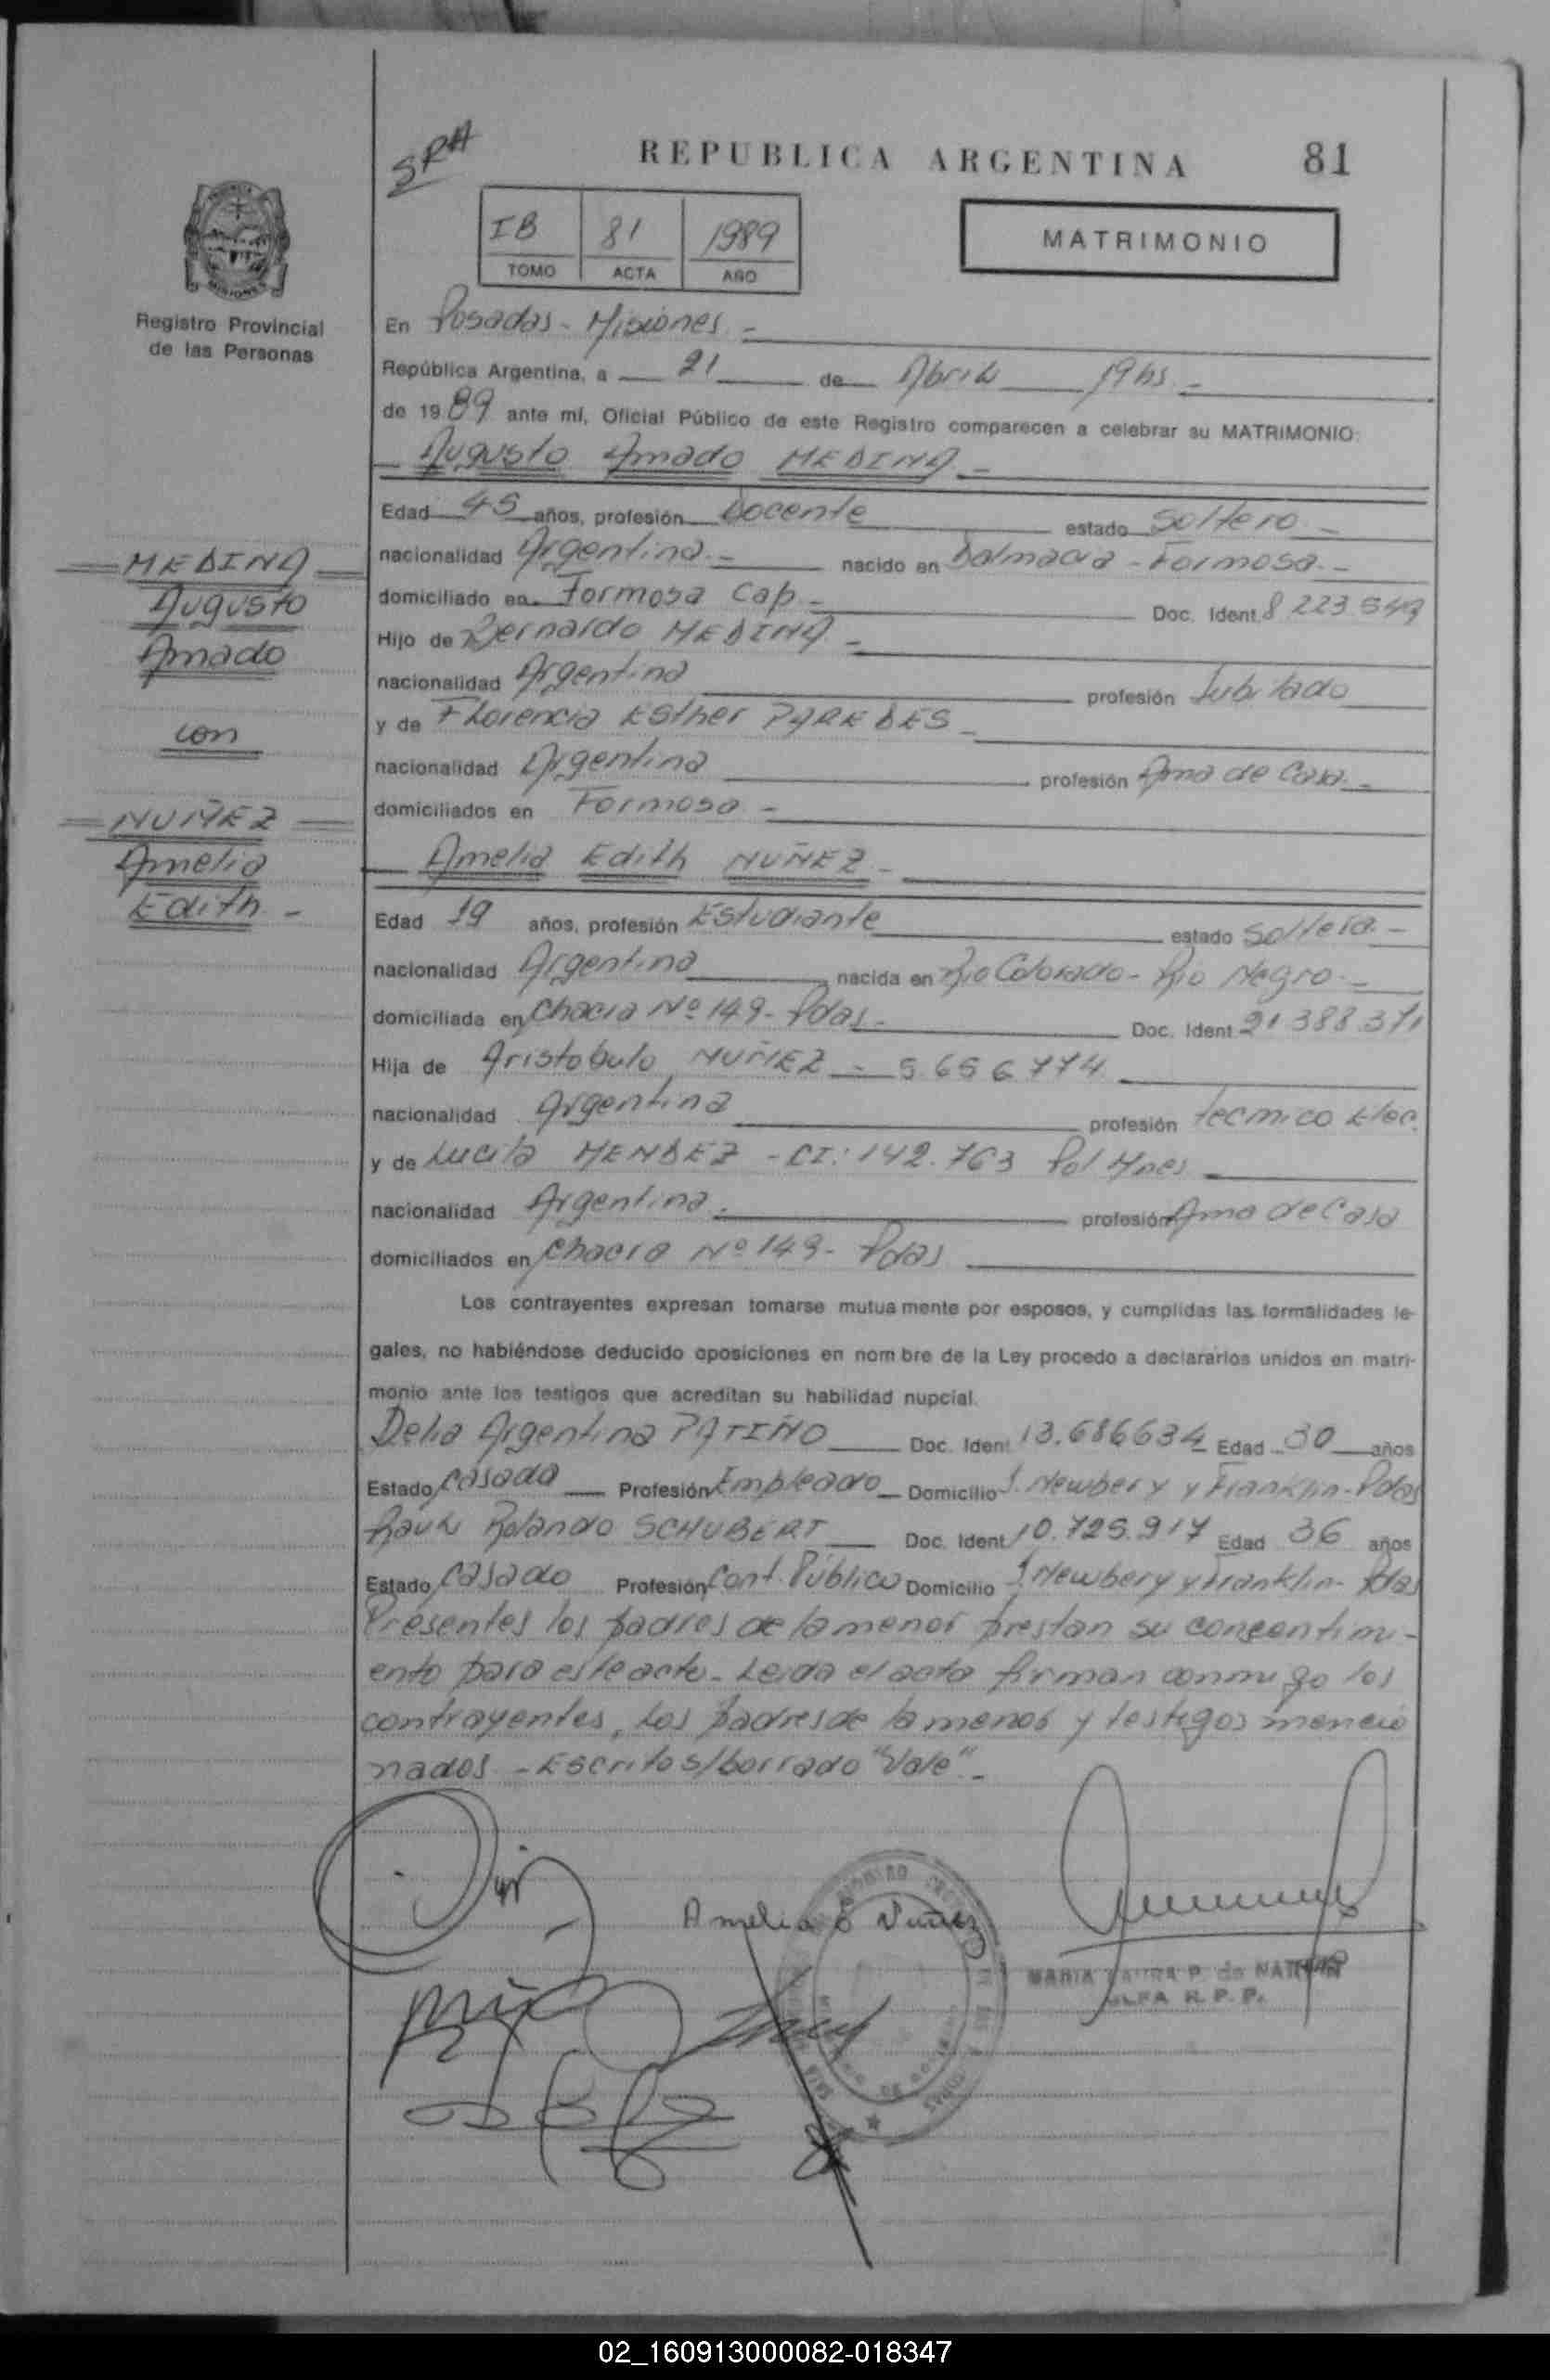 SRA
REPUBLICA ARGENTINA 81
IB 81 1989
TOMO ACTA AÑO
MATRIMONIO
Registro Provincial
de las Personas
En Posadas - Misiones -
República Argentina, a 21 de Abril 19 hs -
de 1989 ante mí, Oficial Público de este Registro comparecen a celebrar su MATRIMONIO:
Augusto Amado MEDINA -
Edad 45 años, profesión Docente estado Soltero -
nacionalidad Argentina - nacido en Dalmacia - Formosa -
domiciliado en Formosa Cap - Doc. Ident. 8.223.549
Hijo de Bernardo MEDINA -
nacionalidad Argentina profesión Jubilado
y de Florencia Esther PAREDES -
nacionalidad Argentina profesión Ama de Casa -
domiciliados en Formosa -
MEDINA
Augusto
Amado
con
NUÑEZ
Amelia
Edith -
Amelia Edith NUÑEZ -
Edad 19 años, profesión Estudiante estado Soltera -
nacionalidad Argentina nacida en Rio Colorado - Rio Negro -
domiciliada en Chacra Nº 149 - Pdas - Doc. Ident. 21.383.371
Hija de Aristobulo NUÑEZ - 5.656.774
nacionalidad Argentina profesión Tecmico Elec.
y de Lucila MENDEZ - CI: 142.763 Pol Mnes
nacionalidad Argentina - profesión Ama de Casa
domiciliados en Chacra Nº 149 - Pdas
Los contrayentes expresan tomarse mutua mente por esposos, y cumplidas las formalidades le-
gales, no habiéndose deducido oposiciones en nom bre de la Ley procedo a declararlos unidos en matri-
monio ante los testigos que acreditan su habilidad nupcial.
Delia Argentina PATIÑO Doc. Ident. 13.686634 Edad 30 años
Estado Casada Profesión Empleado Domicilio J. Newbery y Franklin - Pdas
Raul Rolando SCHUBERT Doc. Ident. 10.725.917 Edad 36 años
Estado Casado Profesión Cont. Público Domicilio J. Newbery y Franklin - Pdas
Presentes los padres de la menor prestan su consentimi-
ento para este acto - Leida el acta firman conmigo los
contrayentes, los padres de la menor y testigos mencio
nados - Escrito s/borrado "Vale" -
Amelia E Nuñez
MARIA LAURA P. de
JEFA R. P. P.
02_160913000082-018347